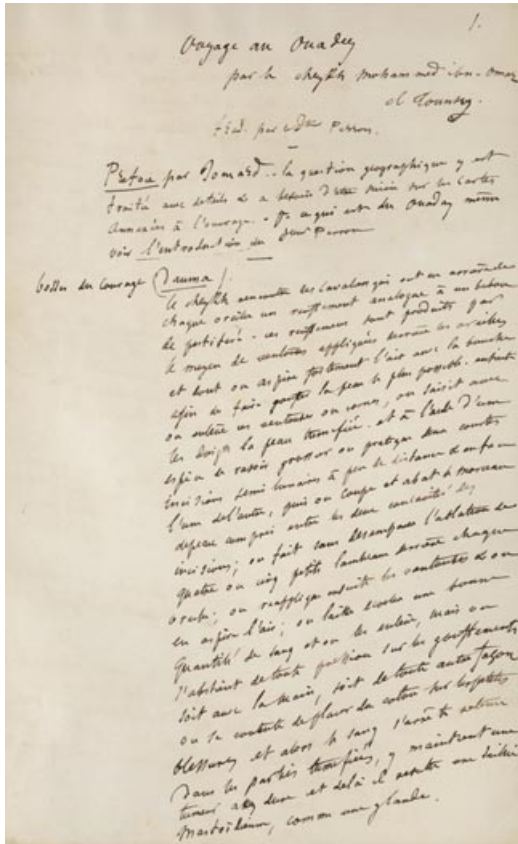 1.
Voyage au Ouadey
par le cheykh Mohammed ibn-Omar
el Tounsy.
trad. par le Dr Perron.
Préface par Jomard. - la question géographique y est
traitée avec détails & a besoin d'être suivie sur les cartes
annexées à l'ouvrage. - Pr ce qui est du Ouaday même
voir l'introduction du Dr Perron
bosses du courage (Dauma).
le cheykh rencontre des cavaliers qui ont en arrière de
chaque oreille un renflement analogue à un bubon
de pestiféré. - ces renflemens sont produits par
le moyen de ventouses appliquées derrière les oreilles
et dont on aspire fortement l'air avec la bouche
afin de faire gonfler la peau le plus possible. ensuite
on enlève ces ventouses ou cornes, on saisit avec
les doigts la peau tuméfiée. et à l'aide d'une
espèce de rasoir grossier on pratique deux courtes
incisions semi lunaires à peu de distance & en face
l'une de l'autre, puis on coupe et abat le morceau
de peau compris entre les deux concavités des
incisions; on fait sans désemparer l'ablation de
quatre ou cinq petits lambeaux derrière chaque
oreille; on réapplique ensuite les ventouses & on
en aspire l'air; on laisse écouler une bonne
quantité de sang et on les enlève, mais on
s'abstient de toute pression sur les gonflements
soit avec la main, soit de toute autre façon
on se contente de placer du coton sur les petites
blessures et alors le sang s'arrête
dans les parties tuméfiées, y maintient une
tumeur assez dure et delà il résulte une saillie
mastoïdienne, comme une glande.